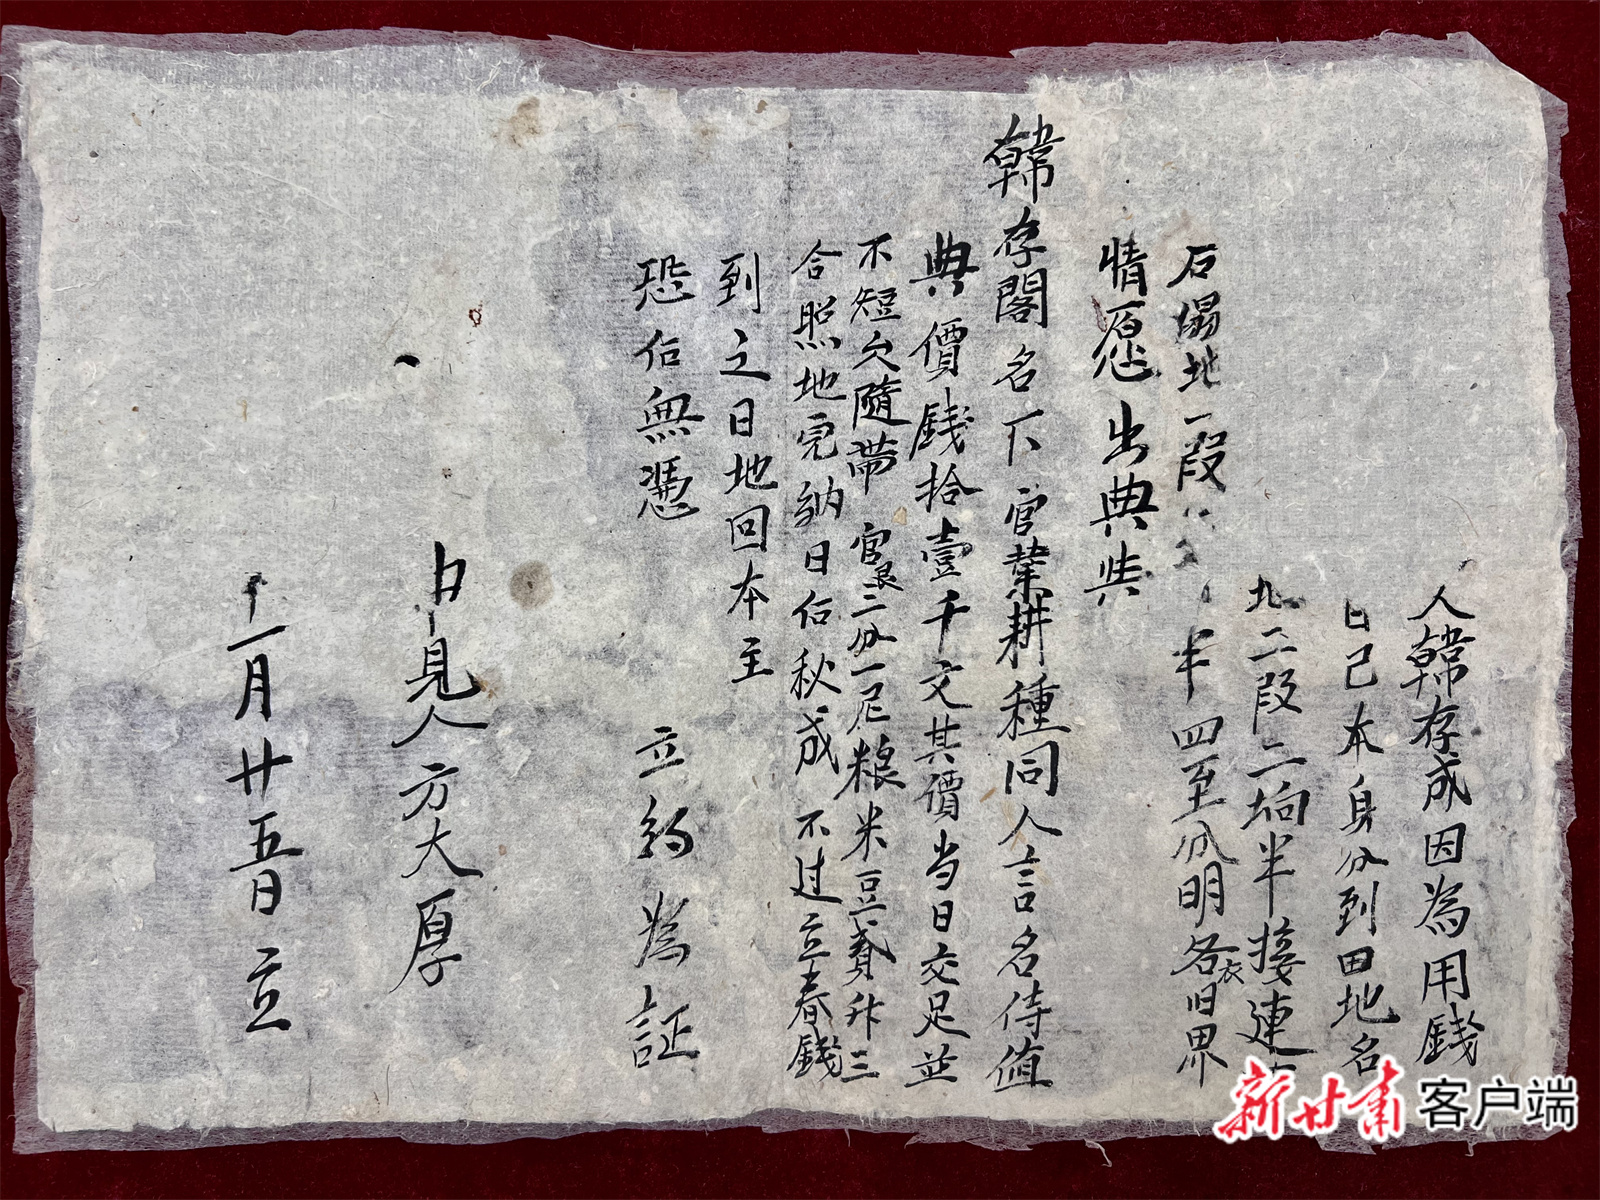 人韓存成因為用錢
自己本身分到田地名
地二段二垧半接連
石 地一段 半四至分明各衣旧界
情愿出典與
韓存閣名下官業耕種同人言名侍值
典價錢拾壹千文其價当日交足並
不短欠隨帶官 二分一厘粮米豆貳升三
合照地完納日后秋成不过立春錢
到之日地回本主
恐后無憑 立約為証
中見人方大厚
十一月廿五日立
新甘肃 客户端